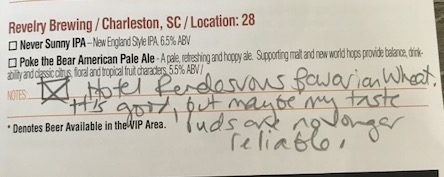 Revelry Brewing / Charleston, SC / Location: 28
☐ Never Sunny IPA – New England Style IPA. 6.5% ABV
☐ Poke the Bear American Pale Ale - A pale, refreshing and hoppy ale. Supporting malt and new world hops provide balance, drink-
ability and classic citrus, floral and tropical fruit characters. 5.5% ABV /
NOTES: ☒ Hotel Rendasvous Bavarian Wheat.
It's good, but maybe my taste
* Denotes Beer Available in the VIP Area.
buds are no longer
reliable.